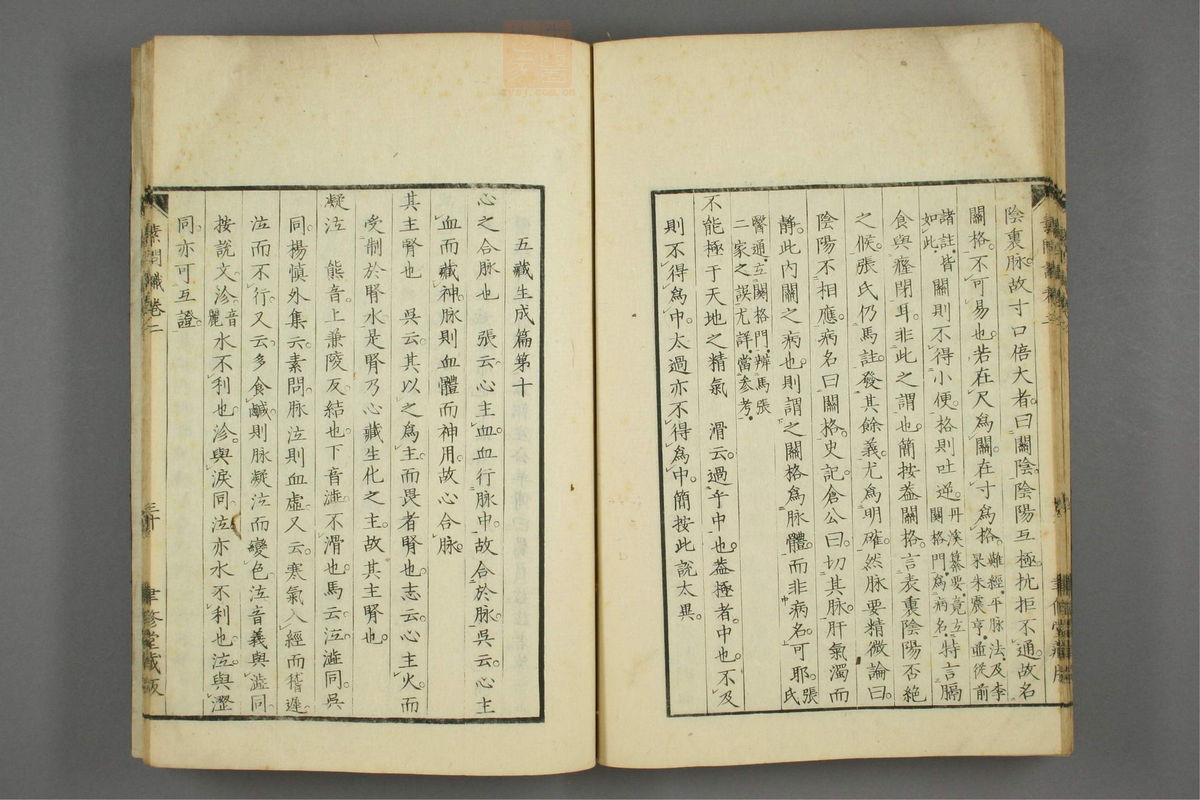 陰裏脉故寸口倍大者曰關陰陰陽互極抗拒不通故名
關格不可易也若在尺爲關在寸爲格難經平脉法及李杲朱震亨並從前
諸註皆關則不得小便格則吐逆丹溪纂要竟立關格門爲病名特言膈
如此
食與癃閉耳非此之謂也簡按蓋關格言表裏陰陽否絶
之候張氏仍馬註發其餘義尤爲明確然脉要精微論曰
陰陽不相應病名曰關格史記倉公曰切其脉肝氣濁而
靜此內關之病也則謂之關格爲脉體而非病名可耶張氏
醫通立關格門辨馬張
二家之誤尤詳當參考
不能極于天地之精氣 滑云過乎中也蓋極者中也不及
則不得爲中太過亦不得爲中簡按此說太異
五藏生成篇第十
心之合脉也 張云心主血血行脉中故合於脉吳云心主
血而藏神脉則血體而神用故心合脉
其主腎也 吳云其以之爲主而畏者腎也志云心主火而
受制於腎水是腎乃心藏生化之主故其主腎也
凝泣 熊音上兼陵反結也下音澁不滑也馬云泣澁同吳
同楊慎外集云素問脉泣則血虛又云寒氣入經而稽遲
泣而不行又云多食鹹則脉凝泣而變色泣音義與澁同
按說文沴音麗水不利也沴與淚同泣亦水不利也泣與澀
同亦可互證
素問識卷二
三十
聿修堂藏版